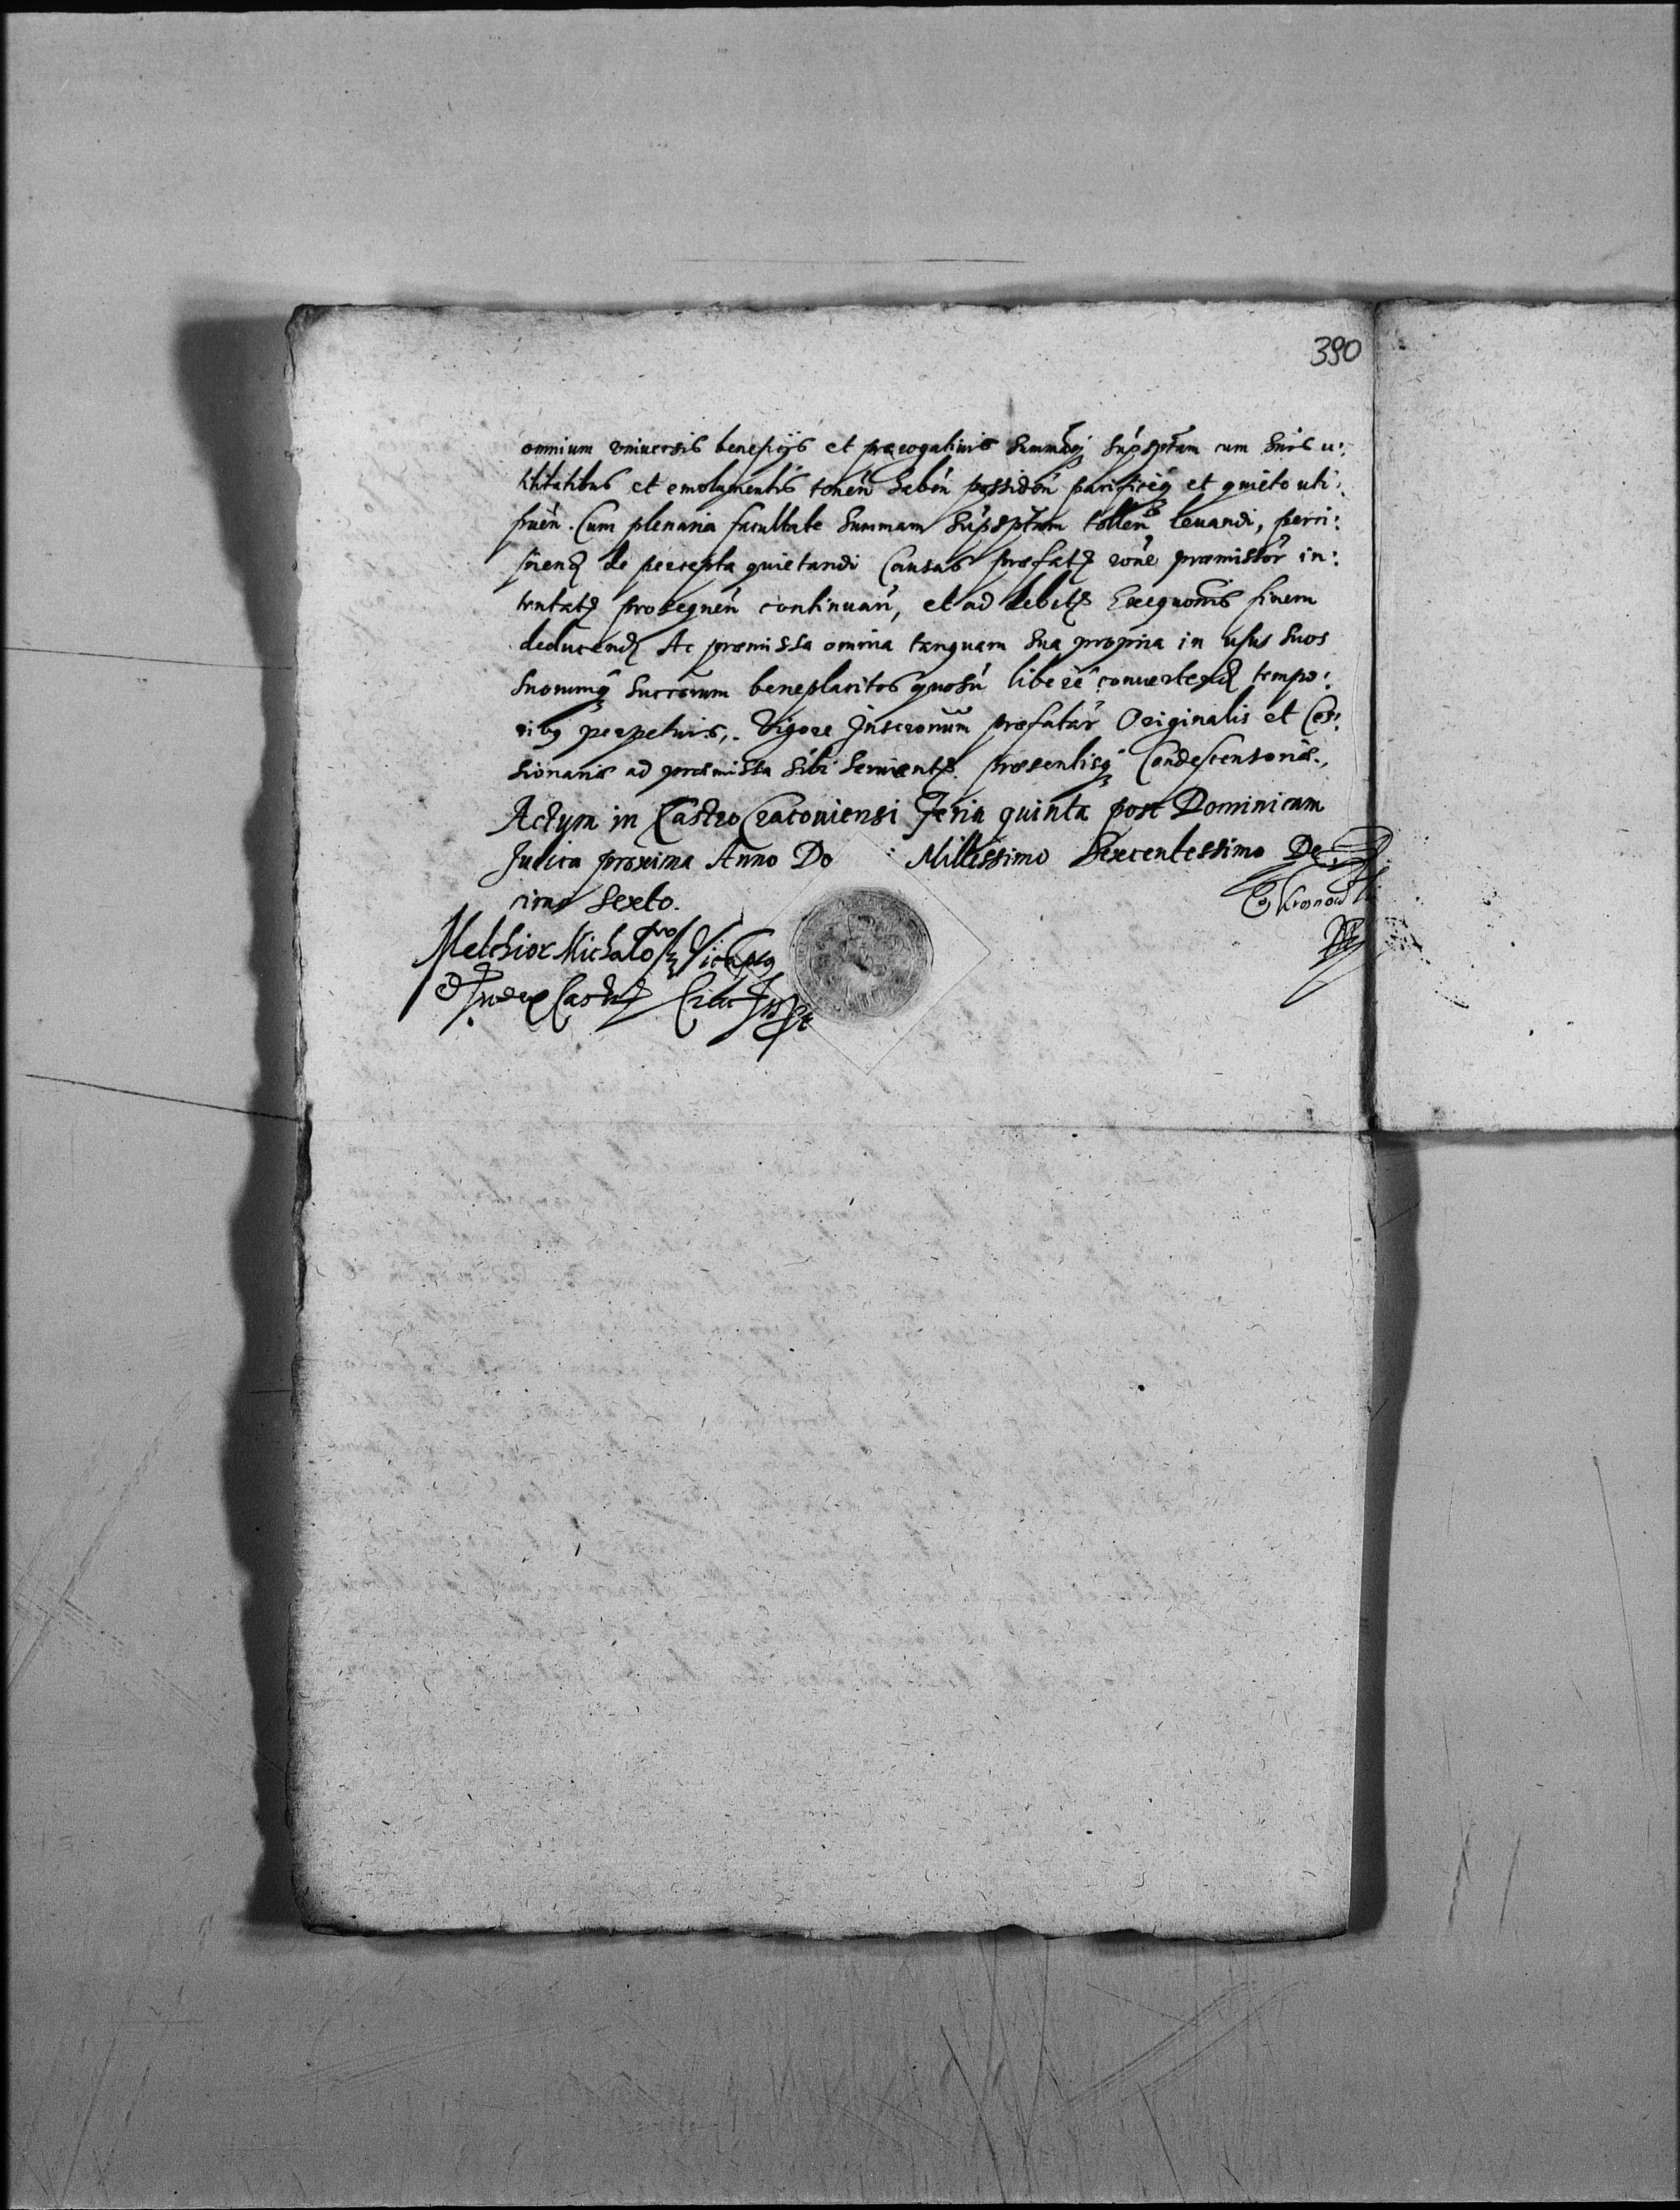 390
omnium vniuersis beneficijs et praerogatiuis Summāq; supsptam cum suis u:
tilitatibus et emolumentis tenen̄ haben̄ possiden̄ pacificeq; et quiete uti
fruen̄. Cum plenaria facultate Summam supsptam tollen̄ leuandi, perci:
piend de percepta quietandi Causas praefat rōne praemissor̄ in:
tentat prosequen̄ continuan̄, et ad debit Exequōnis finem
deducend Ac praemissa omnia tanquam sua propria in usus suos
suorumq; succrorum beneplacitos quosū libere conuertend tempo:
ribq perpetuis,. Vigore Inscrōnum praefatar̄ Originalis et Ces:
sionariae ad praemissa sibi seruient praesentisq; Condescensoriae.,
Actum in Castro Cracouiensi Feria quinta post Dominicam
Judica proxima Anno Do Millessimo Sexcentessimo De:
cimo Sexto.
Melchior Michalo Vicesg
Judex Castr Crac